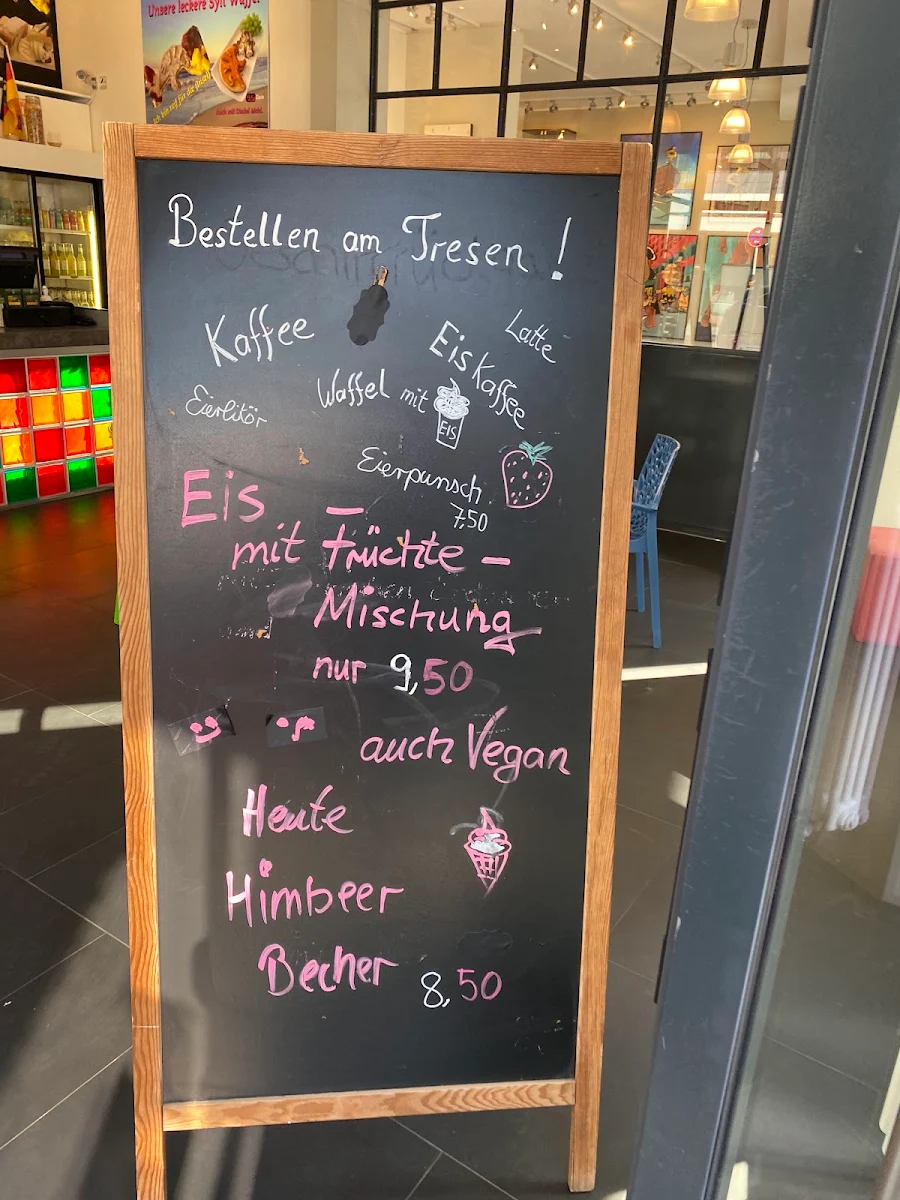 Unsere leckere Sylt Waffel
Bestellen am Tresen !
Kaffee
Latte
EisKaffee
Waffel mit
EIS
Eierlitör
Eierpunsch
7,50
Eis –
mit früchte –
Mischung
nur 9,50
auch Vegan
Heute
Himbeer
Becher 8,50